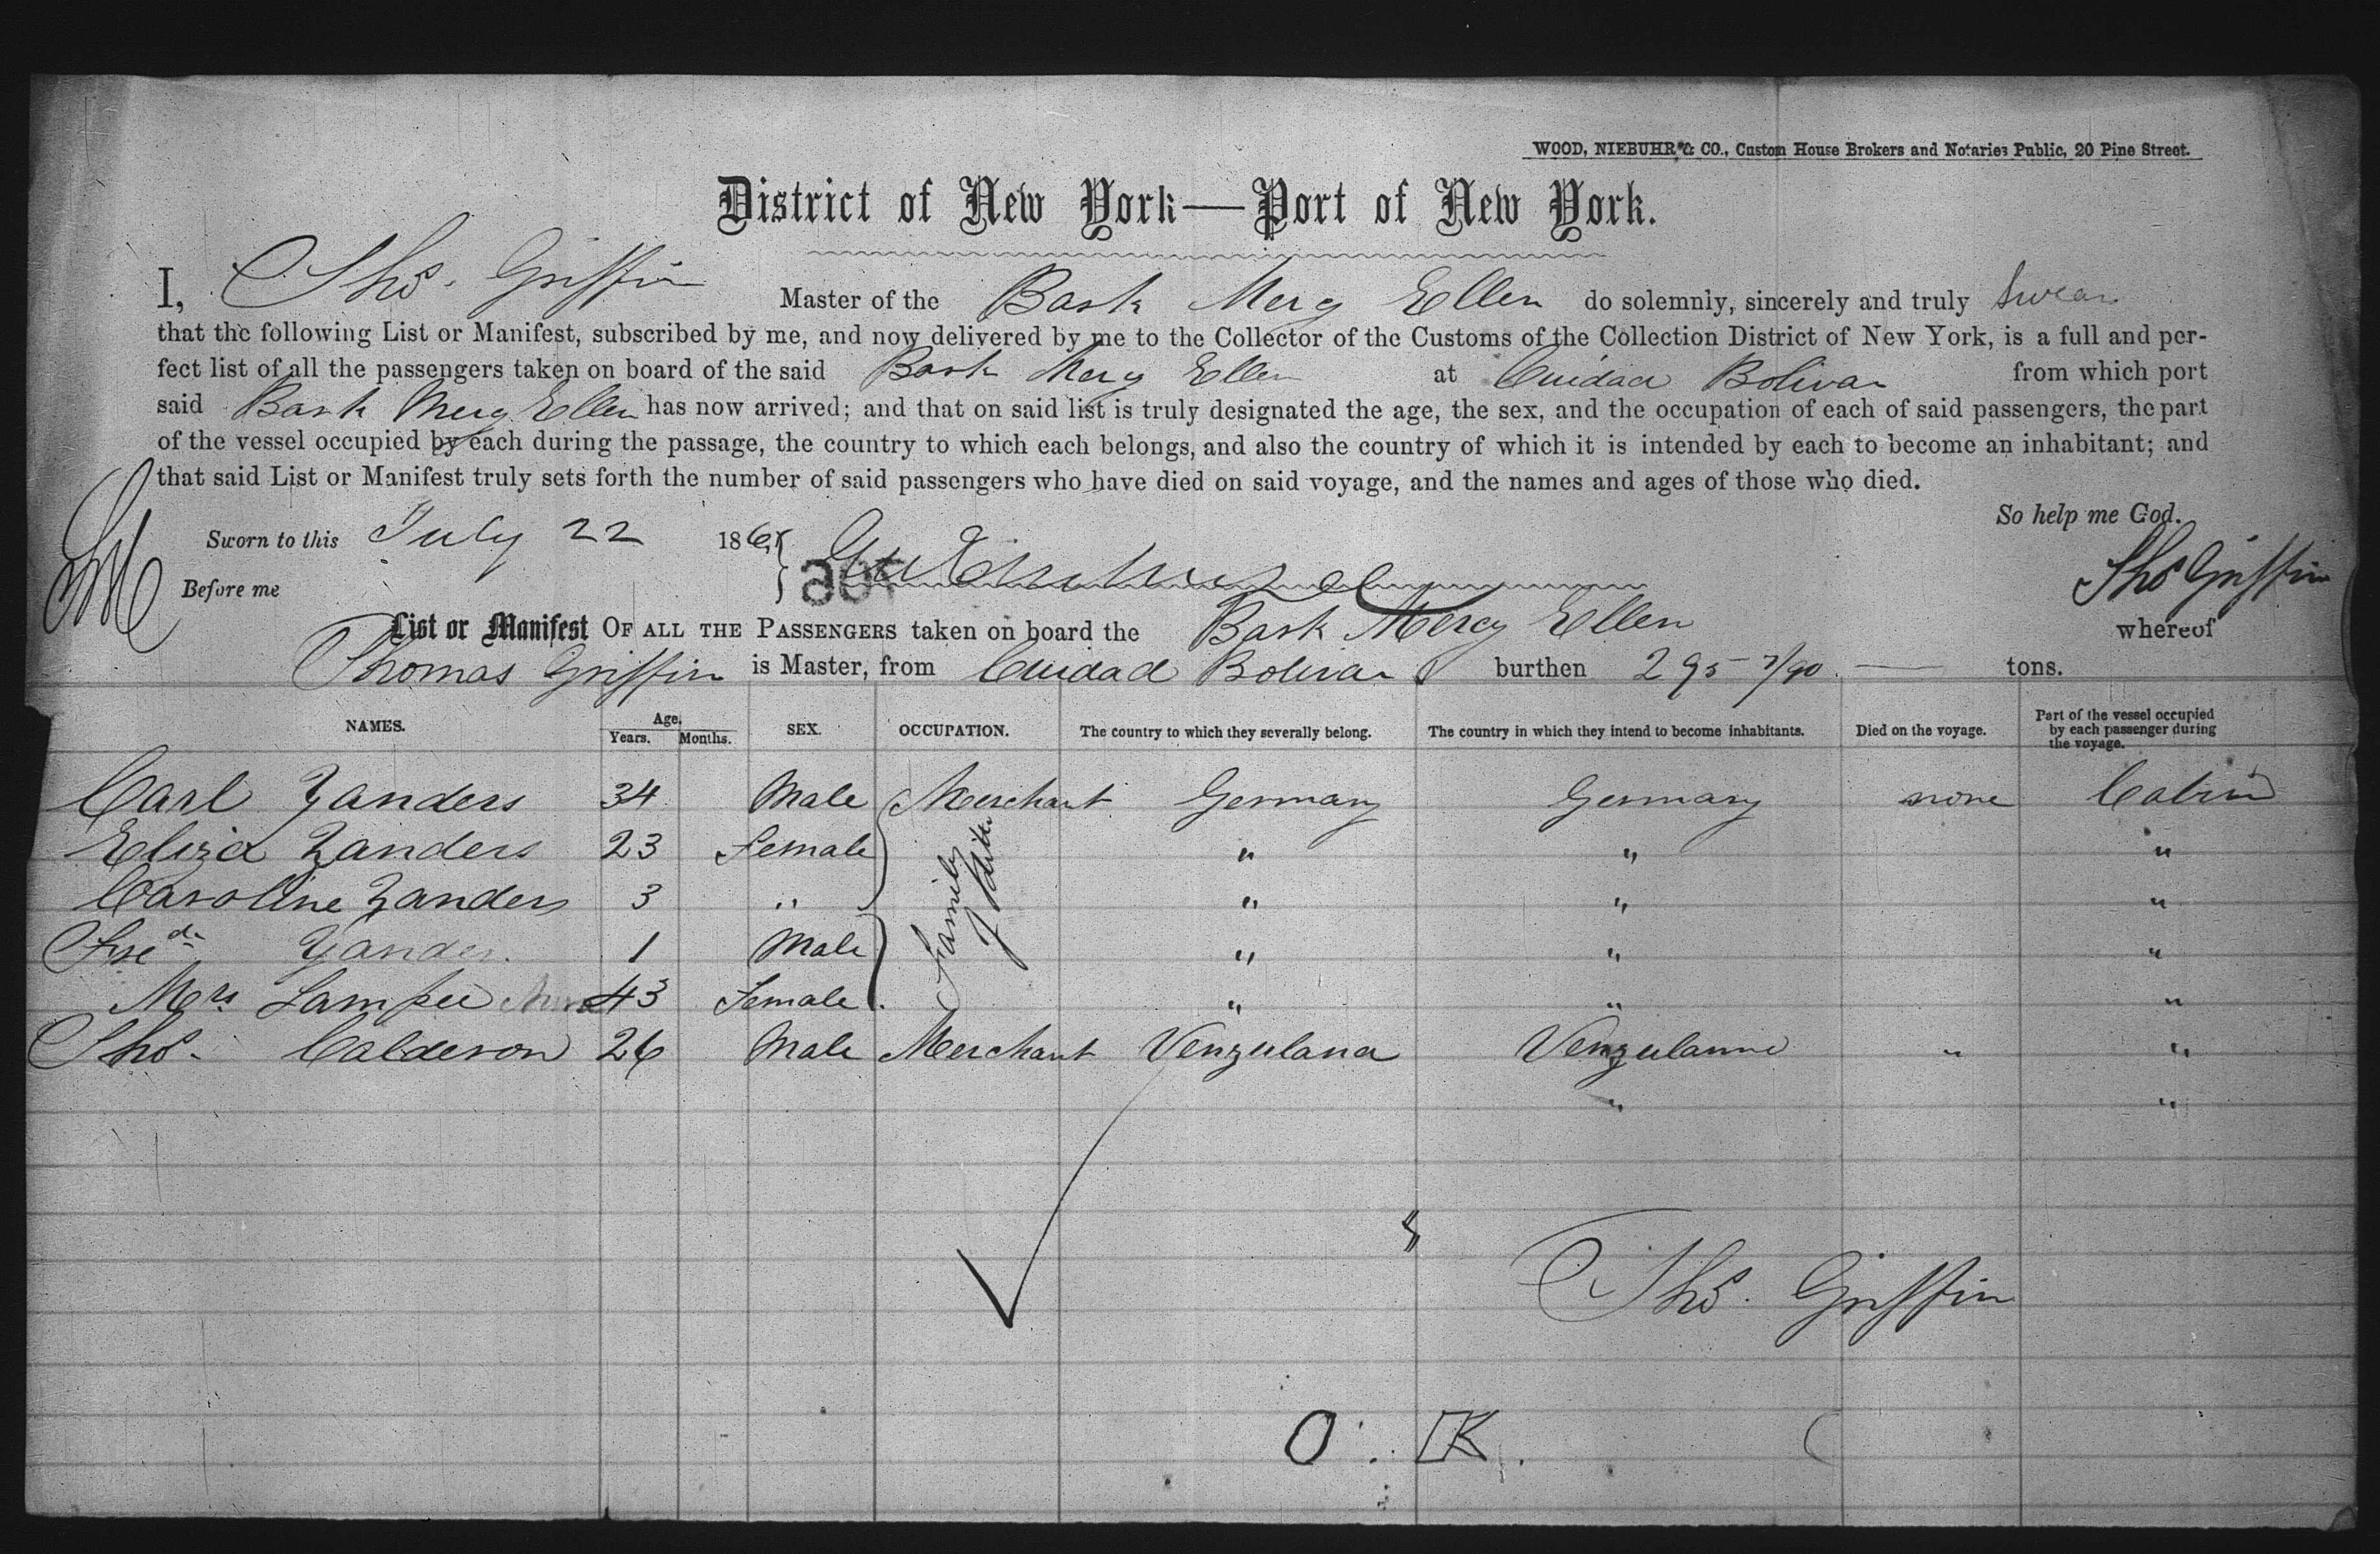 WOOD, NIEBUHR & CO., Custom House Brokers and Notaries Public, 20 Pine Street.
District of New York—Port of New York.
I, Thos. Griffin Master of the Bark Mercy Ellen do solemnly, sincerely and truly swear
that the following List or Manifest, subscribed by me, and now delivered by me to the Collector of the Customs of the Collection District of New York, is a full and per-
fect list of all the passengers taken on board of the said Bark Mercy Ellen at Cuidad Bolivar from which port
said Bark Mercy Ellen has now arrived; and that on said list is truly designated the age, the sex, and the occupation of each of said passengers, the part
of the vessel occupied by each during the passage, the country to which each belongs, and also the country of which it is intended by each to become an inhabitant; and
that said List or Manifest truly sets forth the number of said passengers who have died on said voyage, and the names and ages of those who died.
So help me God.
Sworn to this July 22 186
Before me Thos Griffin
List or Manifest OF ALL THE PASSENGERS taken on board the Bark Mercy Ellen whereof
Thomas Griffin is Master, from Cuidad Bolivar burthen 295 7/90 tons.
NAMES. Age. Years. Months. SEX. OCCUPATION. The country to which they severally belong. The country in which they intend to become inhabitants. Died on the voyage. Part of the vessel occupied by each passenger during the voyage.
Carl Zanders 34 Male Merchant Germany Germany none Cabin
Eliza Zanders 23 Female " " "
Caroline Zanders 3 " " " "
Fred Zander 1 Male " " "
Mrs Lampe 43 Female " " "
Family of ditto
Thos. Calderon 26 Male Merchant Venzulana Venzulanne " "
" "
Thos. Griffin
O. K.